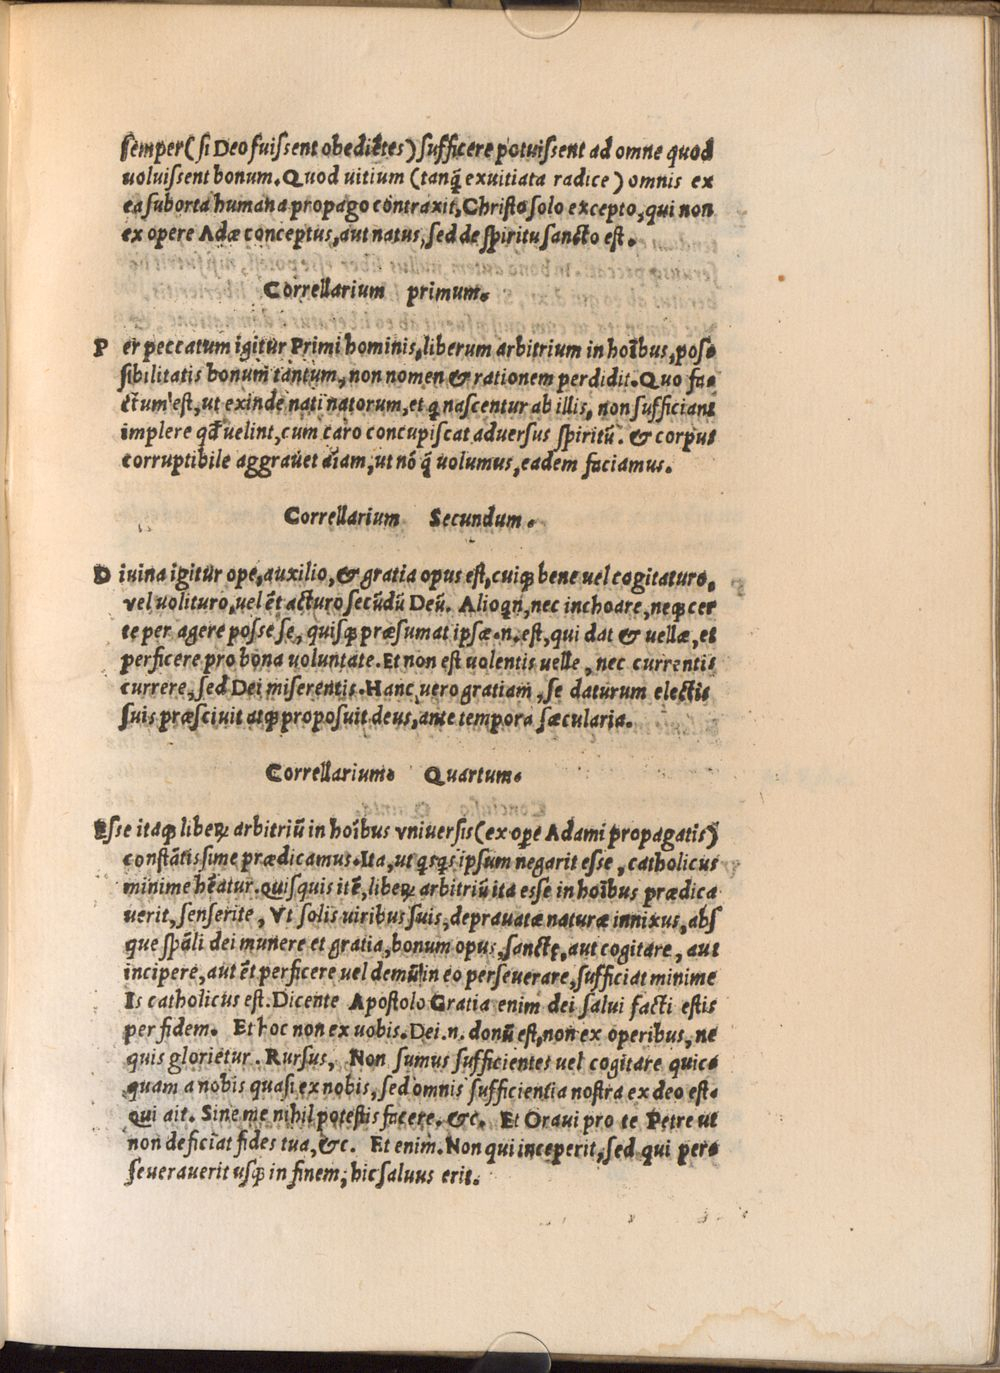 ſemper(ſi Deo fuiſsent obediētes)ſufficere potuiſsent ad omne quod
uoluiſsent bonum.Quod uitium (tanq̄ exuitiata radice) omnis ex
ea ſuborta humana propago contraxit,Chriſto ſolo excepto,qui non
ex opere Adæ conceptus,aut natus,ſed de ſpiritu ſancto eſt.
Correllarium primum.
P er peccatum igitur Primi hominis,liberum arbitrium in hoībus,poſ-
ſibilitatis bonum tantum,non nomen & rationem perdidit.Quo fa-
ctum eſt,ut exinde nati natorum,et q̄ naſcentur ab illis, non ſufficiant
implere qđ uelint,cum caro concupiſcat aduerſus ſpiritū. & corpus
corruptibile aggrauet aīam,ut nō q̄ uolumus,eadem faciamus.
Correllarium Secundum.
D iuina igitur ope,auxilio,& gratia opus eſt,cuiq; bene uel cogitaturo,
vel uolituro,uel ēt acturo ſecūdū Deū. Alioqn̄,nec inchoare,neq; cer
te per agere poſse ſe, quiſq; præſumat ipſæ.n.eſt,qui dat & uellæ,et
perficere pro bona uoluntate.Et non eſt uolentis uelle, nec currentis
currere,ſed Dei miſerentis.Hanc uero gratiam,ſe daturum electis
ſuis præſciuit atq; propoſuit deus,ante tempora ſæcularia.
Correllarium. Quartum.
Eſse itaq; libeꝝ arbitriū in hoībus vniuerſis(ex oꝑe Adami propagatis)
conſtātiſsime prædicamus.Ita,ut qſqs ipſum negarit eſse,catholicus
minime hēatur.Quiſquis itē,libeꝝ arbitriū ita eſse in hoībus prædica
uerit,ſenſerite,Vt ſolis uiribus ſuis,deprauatæ naturæ innixus,abſ
que ſpāli dei munere et gratia,bonum opus,ſancte,aut cogitare, aut
incipere,aut ēt perficere uel demū in eo perſeuerare,ſufficiat minime
Is catholicus eſt.Dicente Apoſtolo Gratia enim dei ſalui facti eſtis
per fidem. Et hoc non ex uobis.Dei.n.donū eſt,non ex operibus,ne
quis glorietur. Rurſus, Non ſumus ſufficientes uel cogitare quic-
quam a nobis quaſi ex nobis,ſed omnis ſufficientia noſtra ex deo eſt.
qui ait. Sine me nihil poteſtis facere. &c. Et Oraui pro te Petre ut
non deficiat fides tua,&c. Et enim.Non qui inceperit,ſed qui per-
ſeuerauerit uſq; in finem,hic ſaluus erit.